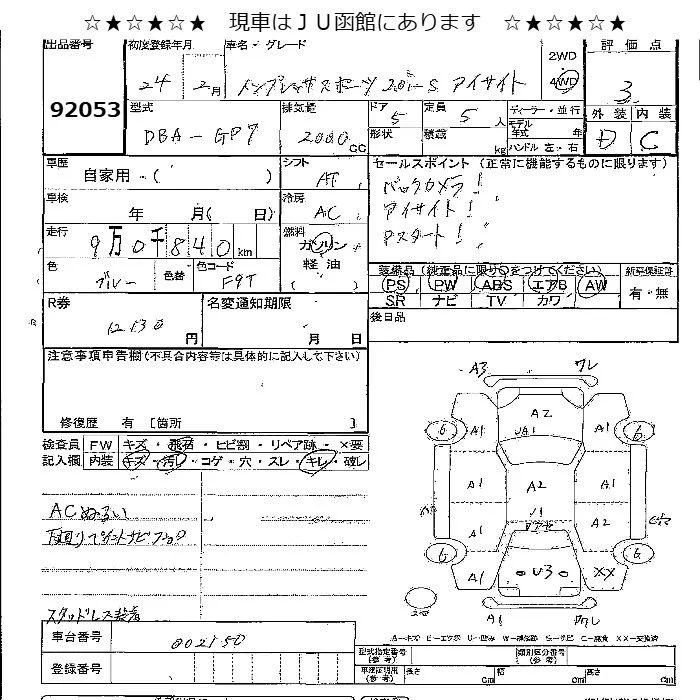 ☆★☆★☆★ 現車はＪＵ函館にあります ☆★☆★☆★
出品番号 初度登録年月 車名・グレード 評価点
92053
24 年 2 月
インプレッサスポーツ 2.0i-S アイサイト
2WD
4WD
3
型式 排気量 ドア 定員 ディーラー・並行 外装 内装
DBA-GP7 2000 CC 5 5 人
モデル年式 年
形状 積載 kg ハンドル 左・右
D C
車歴 自家用・( ) シフト AT
セールスポイント (正常に機能するものに限ります)
バックカメラ！
アイサイト！
Pスタート！
車検 年 月( 日) 冷房 AC
走行 9万0千840km 燃料 ガソリン・軽油
色 ブルー 色替 色コード F9T
装備品 (純正品に限り○をつけてください) 新車保証書
PS PW ABS エアB AW 有・無
SR ナビ TV カワ
R券 12130 円 名変通知期限 月 日
後日品
注意事項申告欄(不具合内容等は具体的に記入して下さい)
修復歴 有 [箇所 ]
検査員 FW キズ・飛石・ヒビ割・リペア跡・×要
記入欄 内装 キズ・汚レ・コゲ・穴・スレ・キレ・破レ
ACぬるい
下回りペイントサビフック
スタッドレス装着
A3 ワレ
A1 A2 A1
6 UA1 6
A1 A2 A1
A1 A1
6 U3 6
A1 XX
A1 ワレ
車台番号 002150
登録番号
A－キズ E－エクボ U－凹み W－補修跡 S－サビ C－腐食 XX－交換済
型式指定番号(参考) 類別区分番号(参考)
車庫証明用(参考) 長さ cm 幅 cm 高さ cm